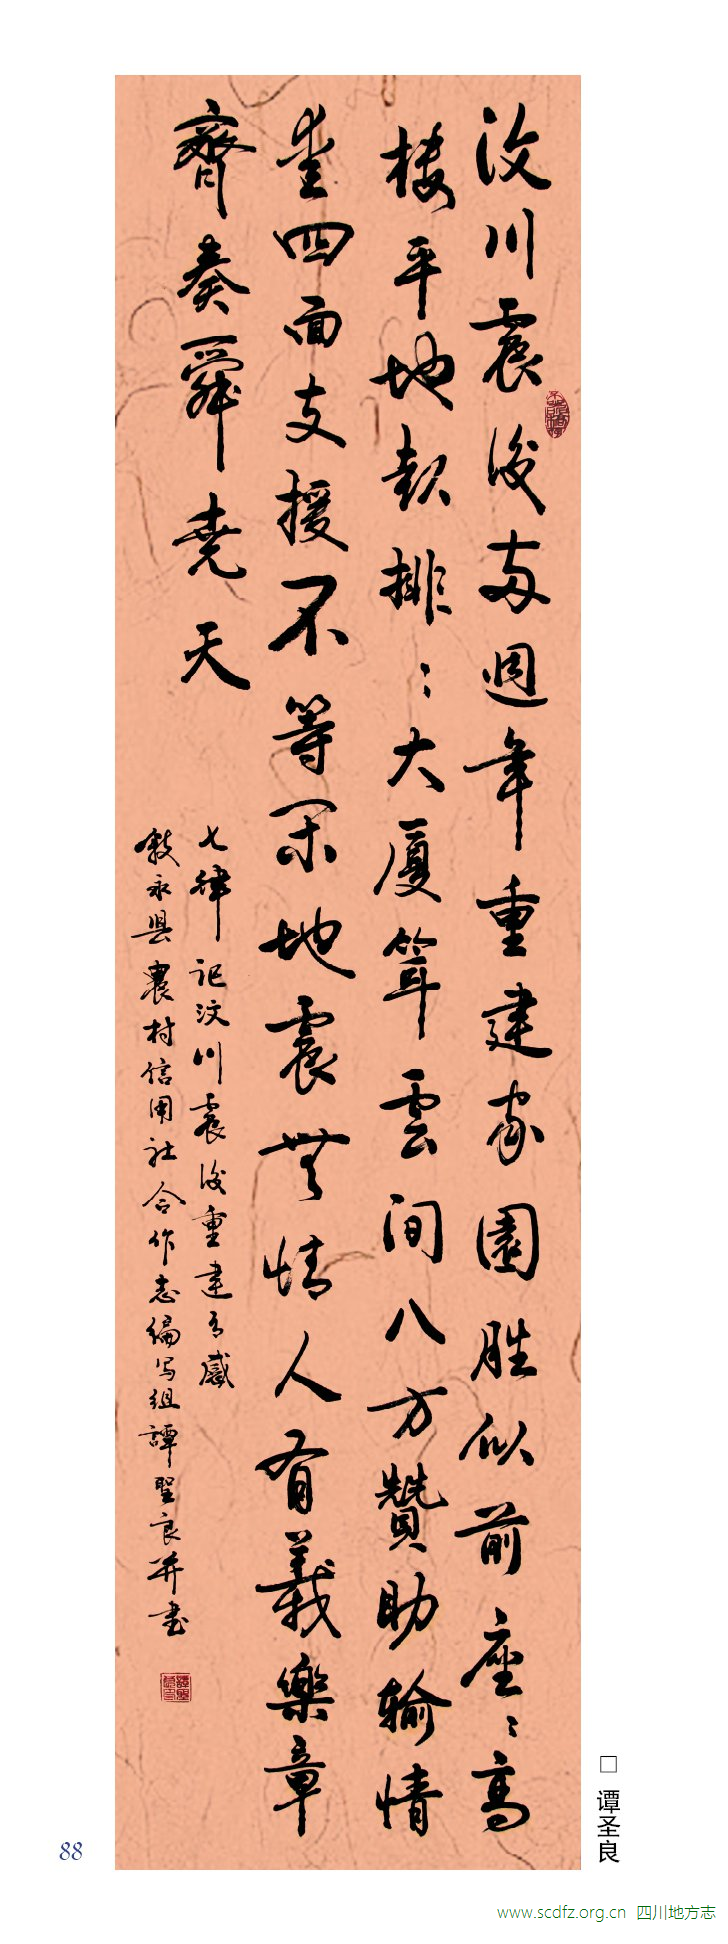 汶川震後两週年重建家園胜似前座〻高
楼平地起排〻大厦聳雲间八方贊助输情
四面支援不等闲地震無情人有義樂章
齊奏舜堯天
七律 记汶川震後重建有感
叙永县農村信用社合作志编写组譚聖良并書
□ 谭圣良
88
www.scdfz.org.cn 四川地方志